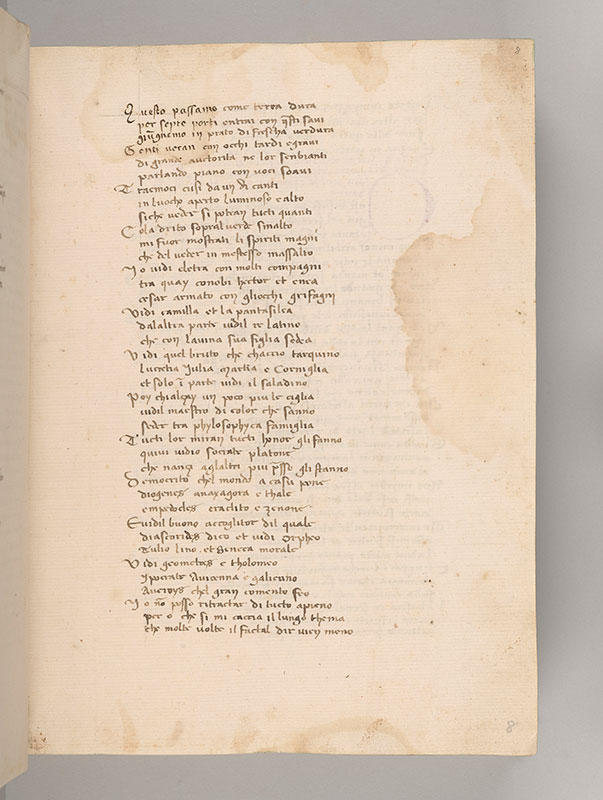 8
Questo passamo come terra dura
per septe porti entrai con q̄sti savi
giu͂gnemo in prato di frescha verdura
Genti veran con occhi tardi e gravi
di grande auctorita ne lor senbianti
parlando piano con voci soavi
Traemoci cusi da un di canti
in luocho aperto luminoso e alto
siche veder si potean tucti quanti
Cola drito sopral verde smalto
mi fuor mostrati li spiriti magni
che del veder in mestesso massalto
Io vidi eletra con molti compagni
tra quay conobi hector et enea
cesar armato con gliocchi grifagni
Vidi camilla et la pantasilea
dalaltra parte vidil re latino
che con lavina sua figlia sedea
Vidi quel bruto che chaccio tarquino
lucretia Iulia martia e Corniglia
et solo ī parte vidi il saladino
Poy chialçay un poco piu le ciglia
vidil maestro di color che sanno
seder tra phylosophyca famiglia
Tucti lor miran tucti honor gli fanno
quivi vidio socrate platone
che nançi aglaltri piu p̄sso gli stanno
Democrito chel mondo a casu pone
diogenes anaxagora e thale
empedocles eraclito e zenone
Evidil buono accoglitor dil quale
diascorides dico et vidi Orpheo
Tulio lino et Seneca morale
Vidi geometras e tholomeo
Ipocrate Avicenna e galieno
Averoys chel gran comento feo
Io nō posso ritractar di tucto apieno
per o che si mi caccia il lungo thema
che molte volte il factal dir vien meno
8